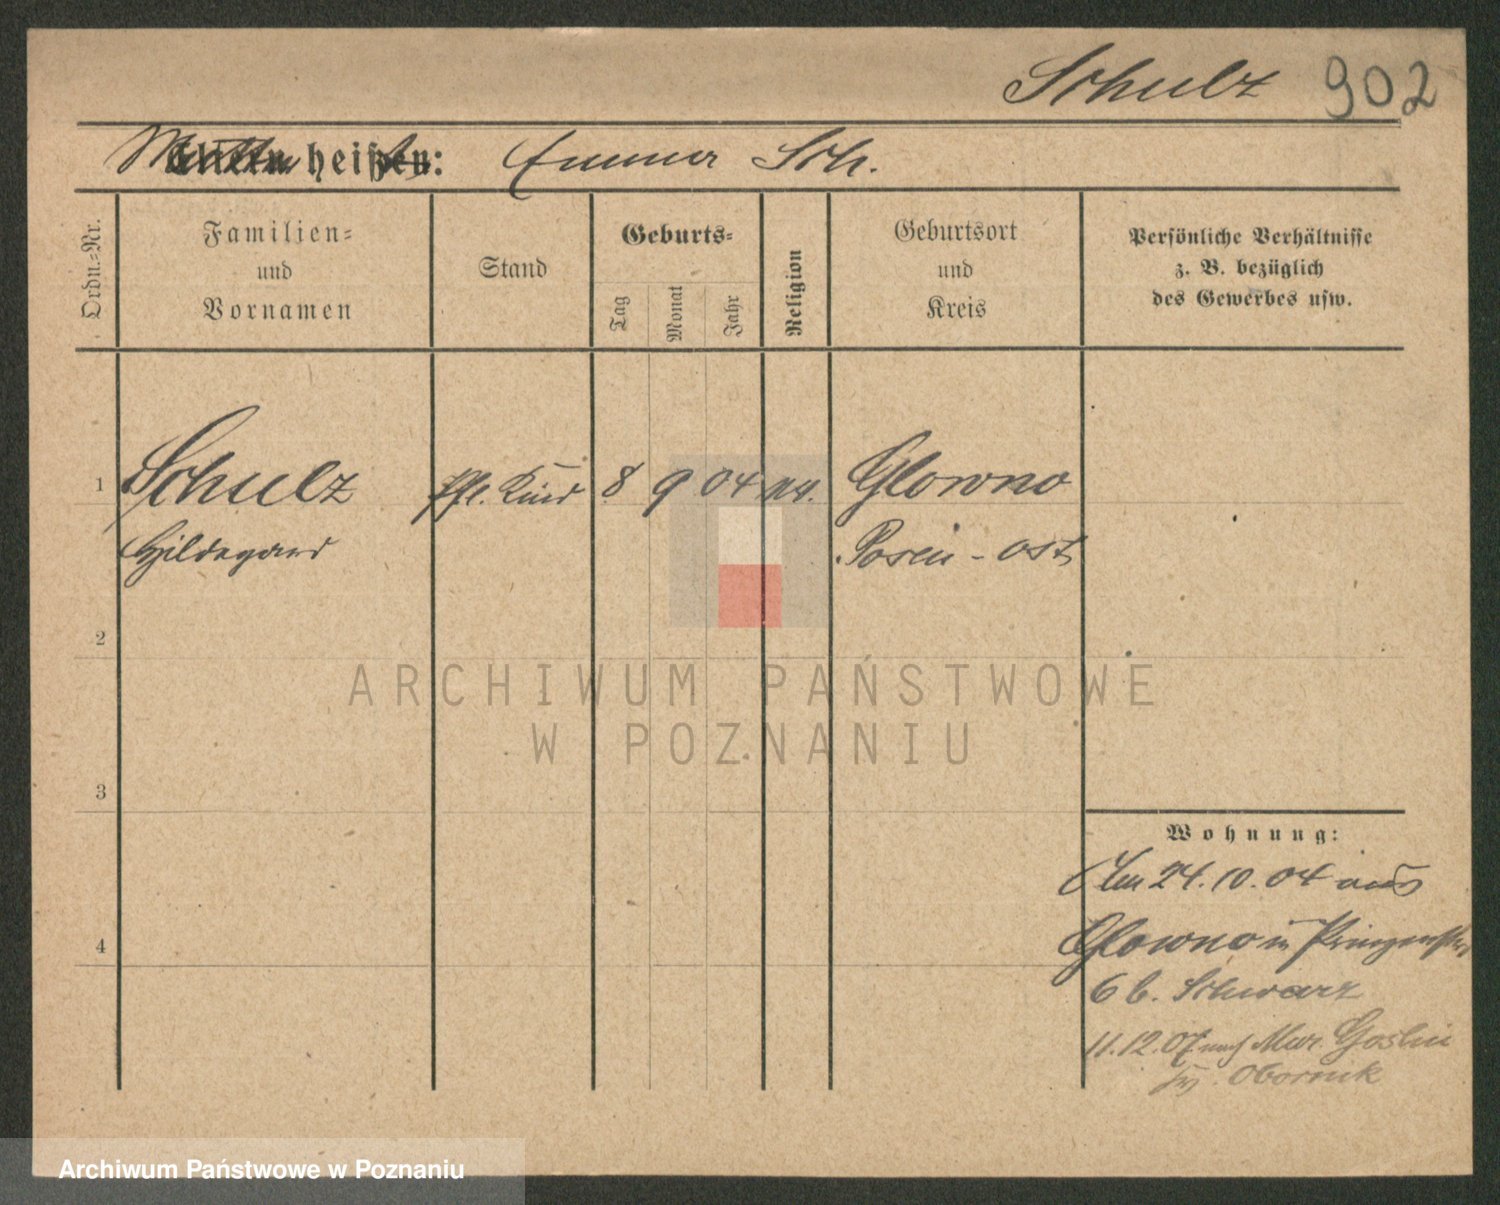 Schulz 902
Mutter heißt: Emma Sch.
Ordn.-Nr.
Familien-
und
Vornamen
Stand
Geburts-
Tag
Monat
Jahr
Religion
Geburtsort
und
Kreis
Persönliche Verhältnisse
z. B. bezüglich
des Gewerbes usw.
1 Schulz Pfl. Kind 8 9 04 Glowno
Hildegard Posen-Ost
2
ARCHIWUM PAŃSTWOWE
W POZNANIU
3
Wohnung:
Am 24.10.04 aus
4 Glowno in Prinzenstr
6 b. Schwarz
11.12.07 nach Mur. Goslin
Obornik
Archiwum Państwowe w Poznaniu